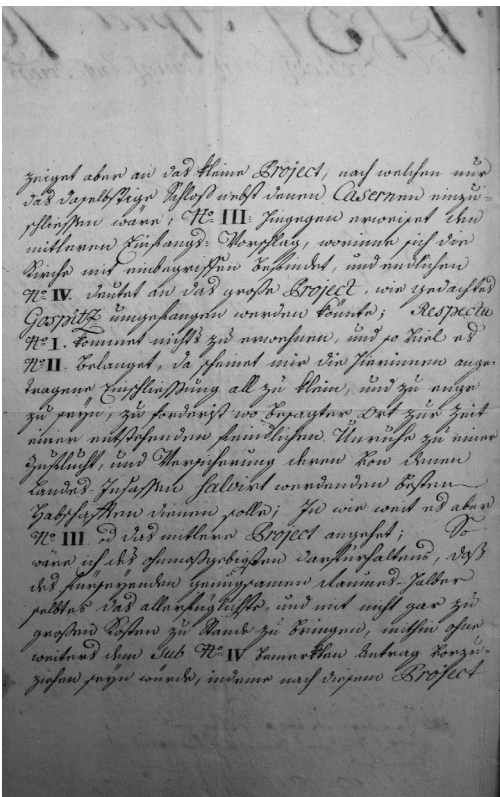 zeiget aber an das kleine Project, nach welchen nur
das daselbstige Schloß nebst denen Casernen einzu-
schliessen wäre; No. III. hingegen erweiset den
mittleren Vorschlag, worinne sich die
Kirche mit einbegriffen befindet, und endlichen
No. IV. deutet an das große Project, wie gedachtes
Gospitz umgefangen werden könte; Respectu
No. I. kommet nichts zu erwehnen, und so viel es
No. II. belanget, da scheinet mir die hierinnen ange-
tragene Einschliessung all zu klein, und zu enge
zu seyn, zu forderist wo besagter Ort zur Zeit
einer entstehenden feindlichen Unruhe zu einer
Zuflucht, und Versicherung deren von denen
Landes-Insassen salvirt werdenden besten
Habschafften dienen solle; In wie weit es aber
No. III od das mitlere Project angehet; So
wäre ich des ohnmaßgebigsten darfürhaltens, daß
des fürseyenden genugsamen Raumes-halber
selbtes das allerfüglichste, und mit nicht gar zu
großen Kosten zu Stande zu bringen, mithin ohne
weiters dem sub No. IV bemerkten Antrag vorzu-
ziehen seyn würde, indeme nach diesem Project